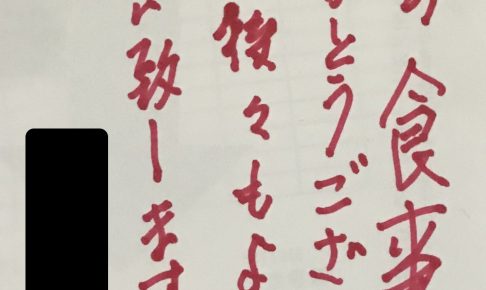 食事
とうござ
後々もよ
致します